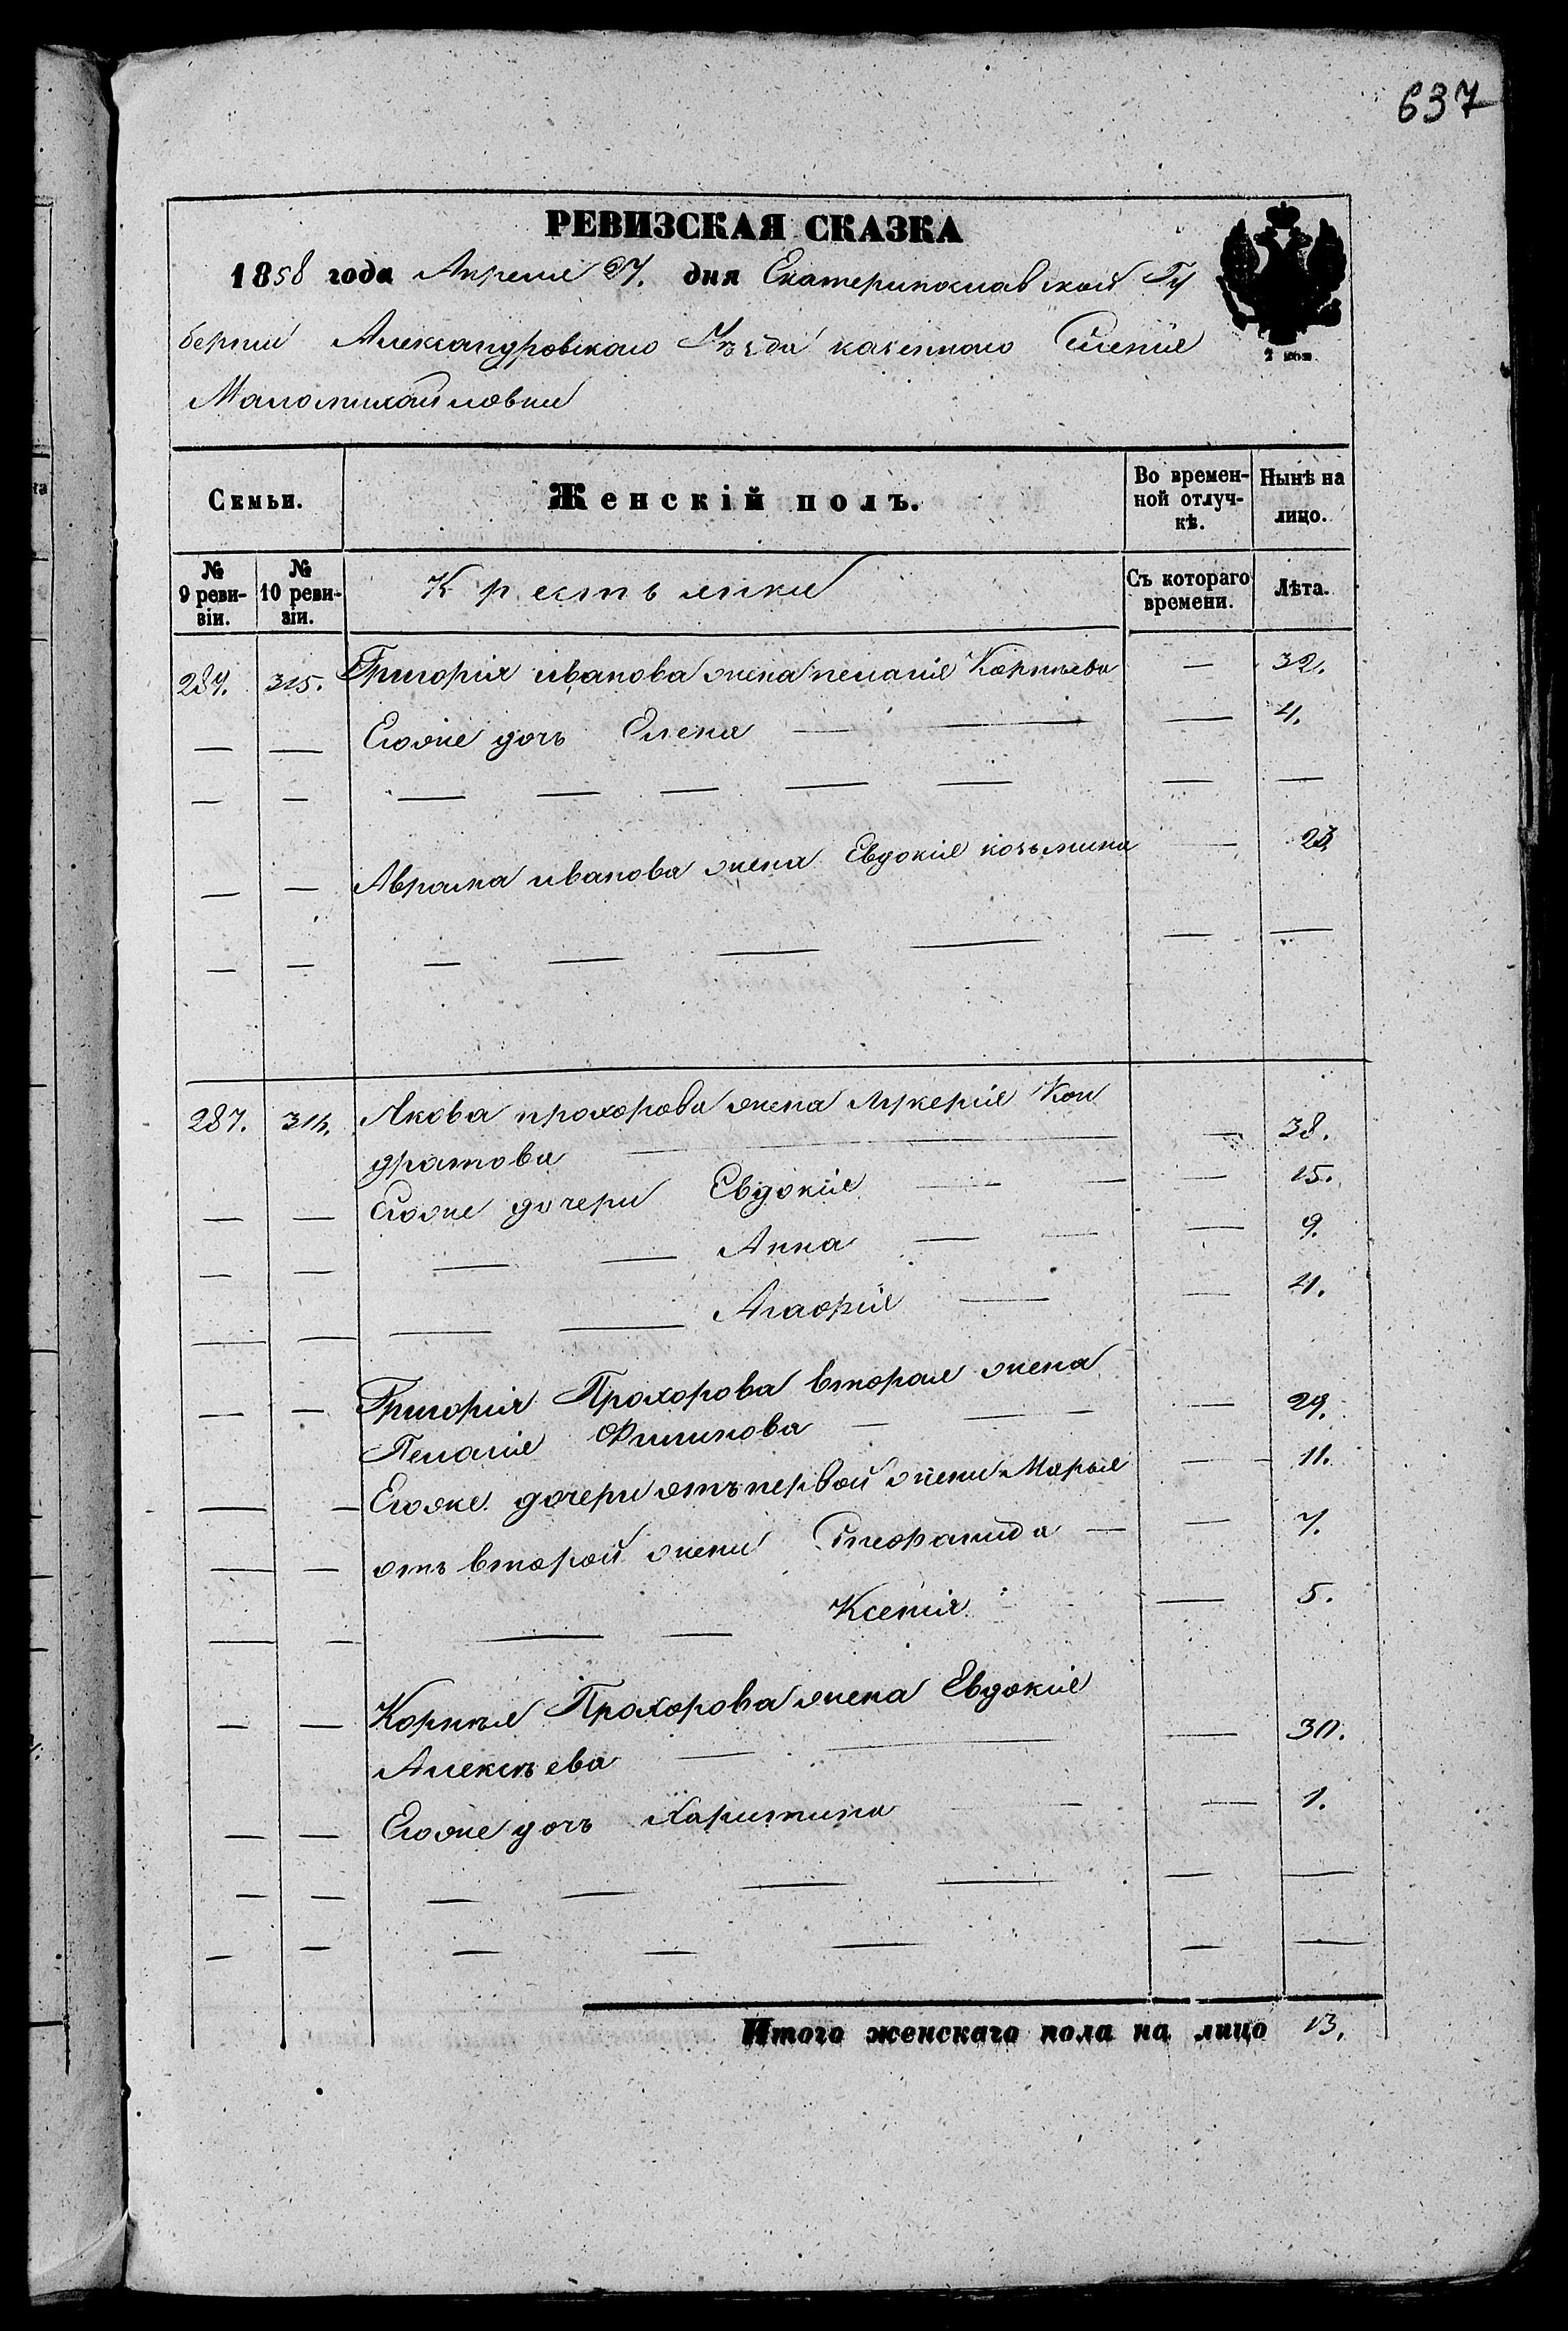 637
РЕВИЗСКАЯ СКАЗКА
1858 года Апреля дня Екатеринославской Гу
бернии Александровского Уѣзда казенного Селения
Маломихайловки
2 коп.
Семьи. Женскій полъ. Во времен-ной отлуч-кѣ. Нынѣ на лицо.
№ 9 реви-зіи. № 10 реви-зіи. Крестьянки Съ котораго времени. Лѣта.
315. Григорія иванова жена пелагія Корнѣева — 32.
— — Егоже дочь Елена — — — 4.
— — — — — — — — —
— — Аврама иванова жена Евдокія козьмина — 23
— — — — — — — —
287. 316. Якова прохорова жена Лукерія Кон
дратова — — 38.
— — Егоже дочери Евдокія — — — 15.
— — — — Анна — — — 9.
— — — — Агафія — — 4.
— — Григорія Прохорова вторая жена
Пелагія Филипова — — — — 29.
— — Егоже дочери отъ первой жены Марья — 11.
— — отъ второй жены Стефанида — — 7.
— — — — Ксенія — 5.
— — Корнѣя Прохорова жена Евдокія
Алексѣева — — — 30.
— — Егоже дочь Харитина — — 1.
— — — — — — — —
— — — — — — —
Итого женскаго пола на лицо 13.